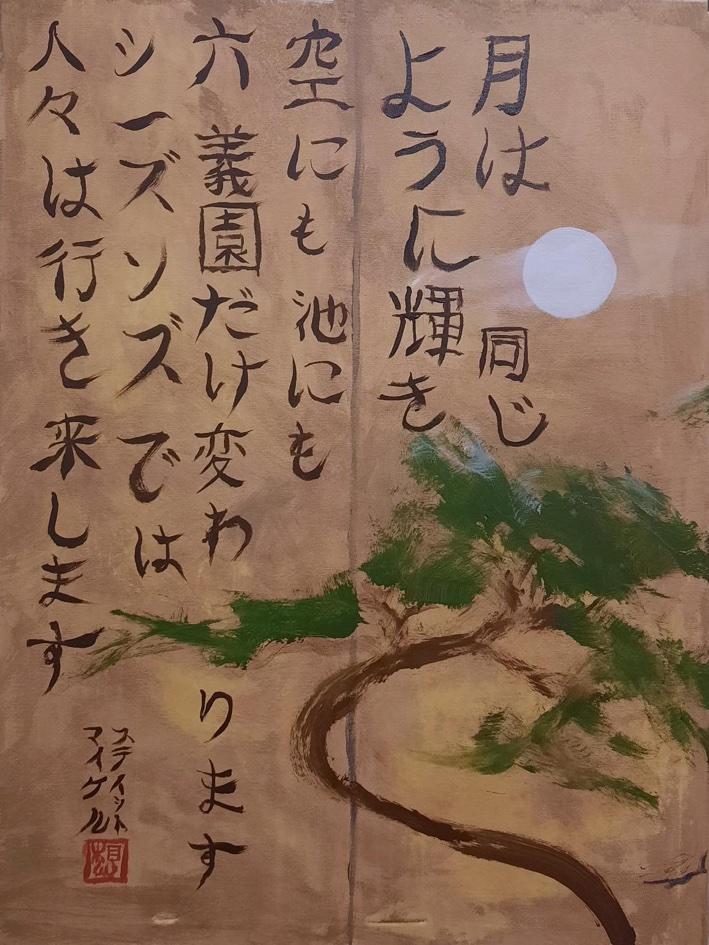 月は同じ
ように輝き
空にも池にも
六義園だけ変わります
シーズソズでは
人々は行き来します
スティット
マイケル